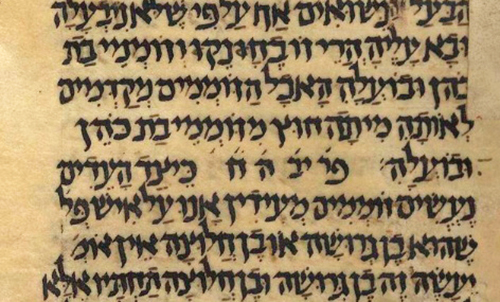 הבעל לנשואים אף על פי שלא נבעלה
ובא עליה הרי זו בחנק וזוממי בת
כהן ובועלה הזוממים מקדמים
לאותה מיתה חוץ מזוממי בת כהן
ובועלה פר יב ה ח כיצד העדים
נעשים זוממים מעידין אנו על איש פל
שהוא בן גרושה או בן חלוצה אין אומ
יעשה זה בן גרושה ובן חלוצה תחתיו אלא